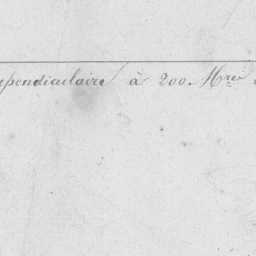 pendiculaire à 200. Mres